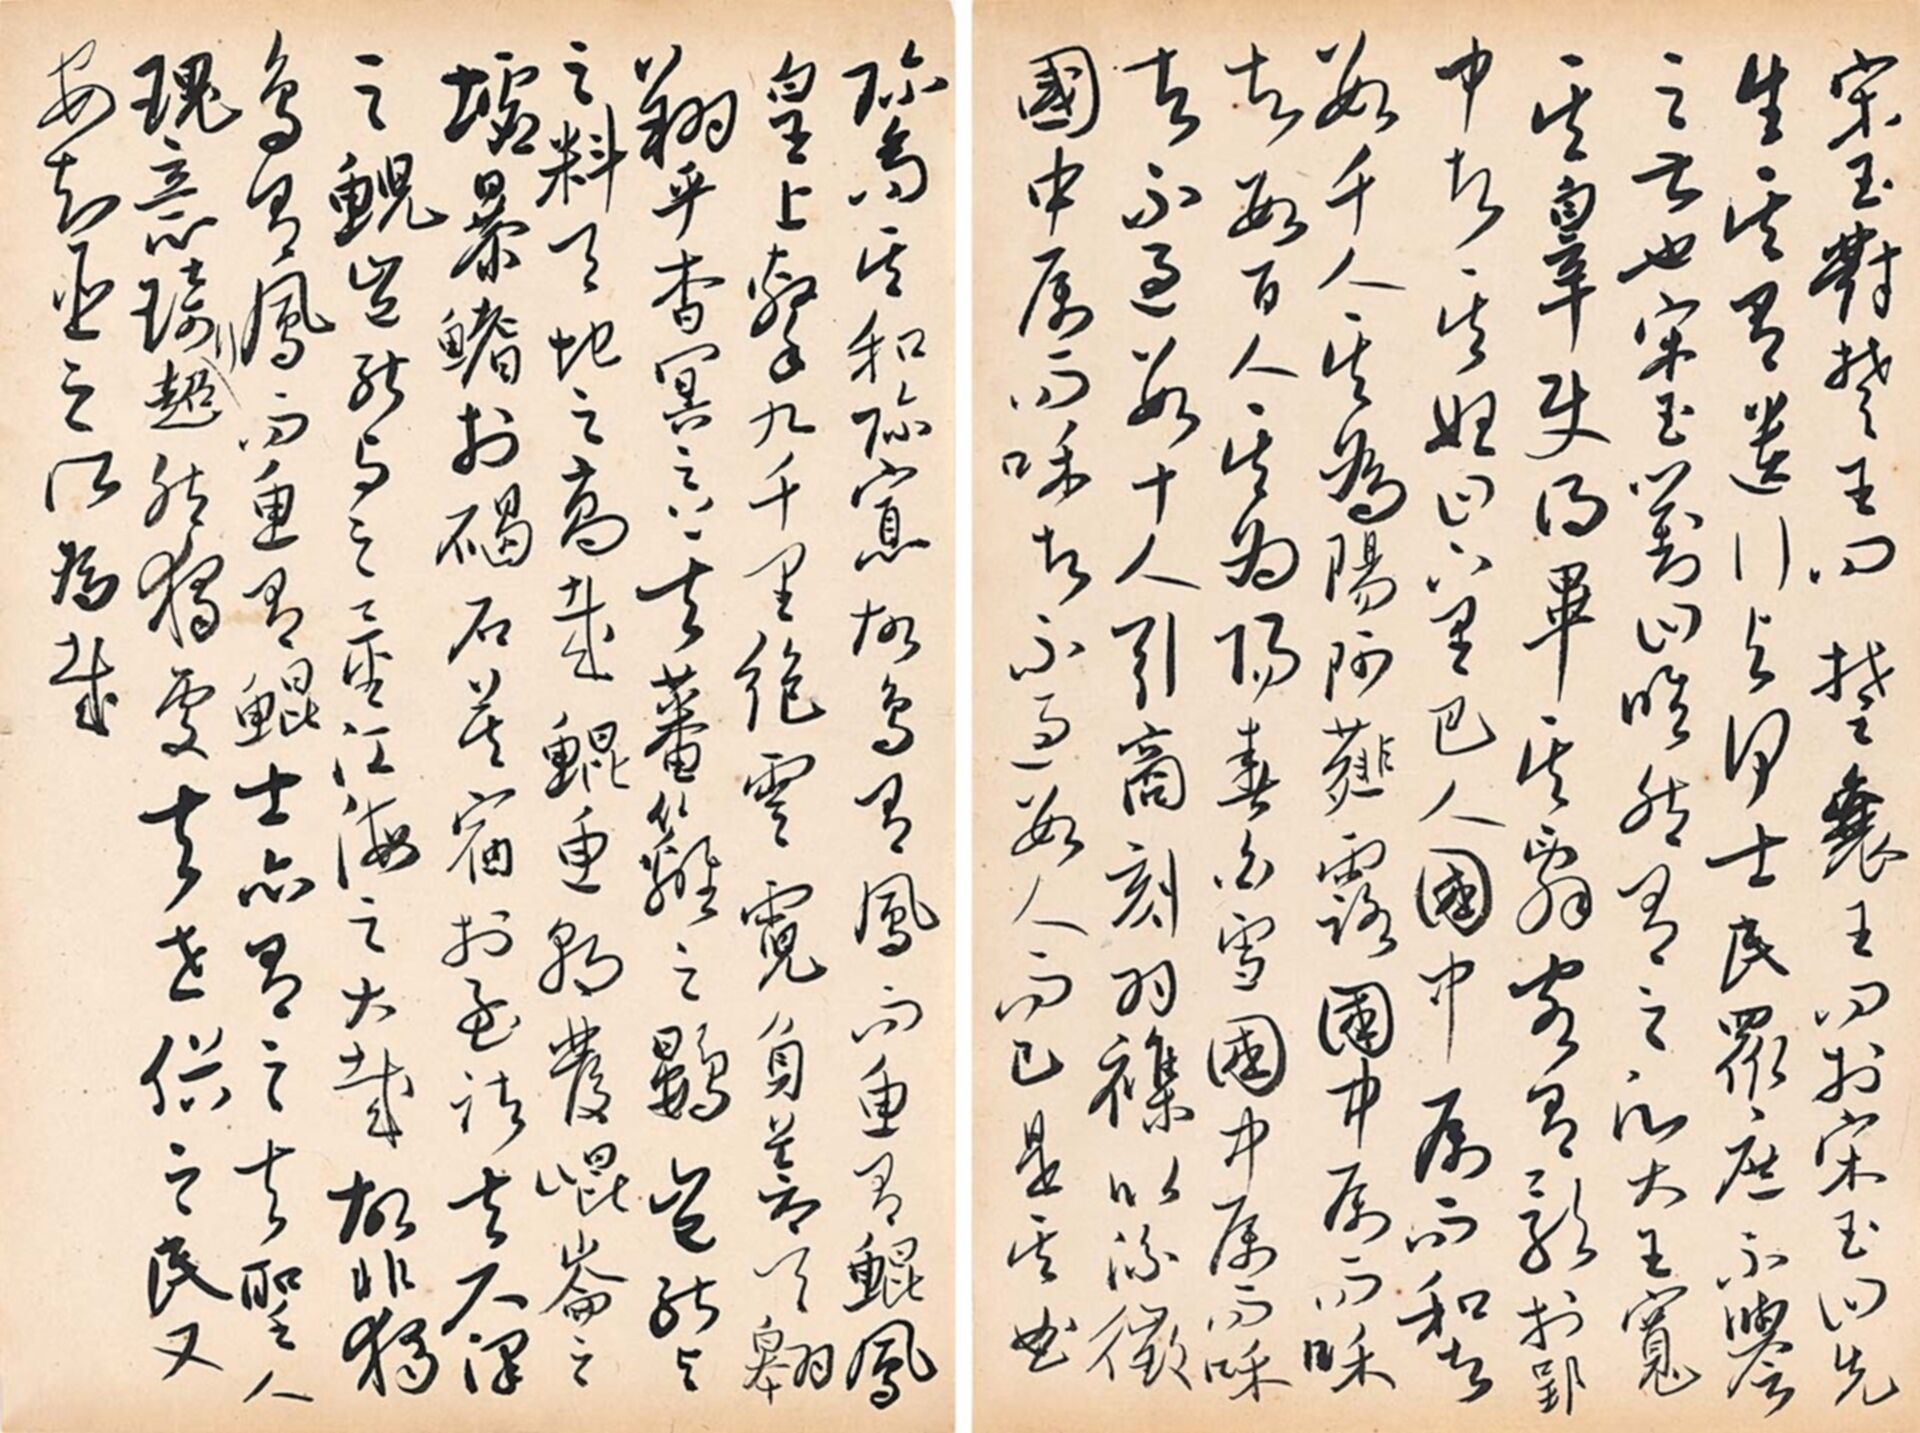 宋玉對楚王問 楚襄王問於宋玉曰先
生其有遺行與何士民眾庶不譽
之甚也宋玉對曰唯然有之願大王寬
其辠使得畢其辭客有歌於郢
中者其始曰下里巴人國中屬而和者
數千人其為陽阿薤露國中屬而咊
者數百人其為陽春白雪國中屬而咊
者不過數十人引商刻羽雜以流徵
國中屬而咊者不過數人而已是其曲
彌高其和彌寡故鳥有鳳而魚有鯤鳳
皇上擊九千里絕雲霓負蒼天翱
翔乎杳冥之上夫蕃籬之鷃豈能與
之料天地之高哉鯤魚朝發崐崙之
墟暴鰭於碣石暮宿於孟諸夫尺澤
之鯢豈能與之量江海之大哉故非獨
鳥有鳳而魚有鯤士亦有之夫聖人
瑰意琦行超然獨處夫世俗之民又
安知臣之所為哉